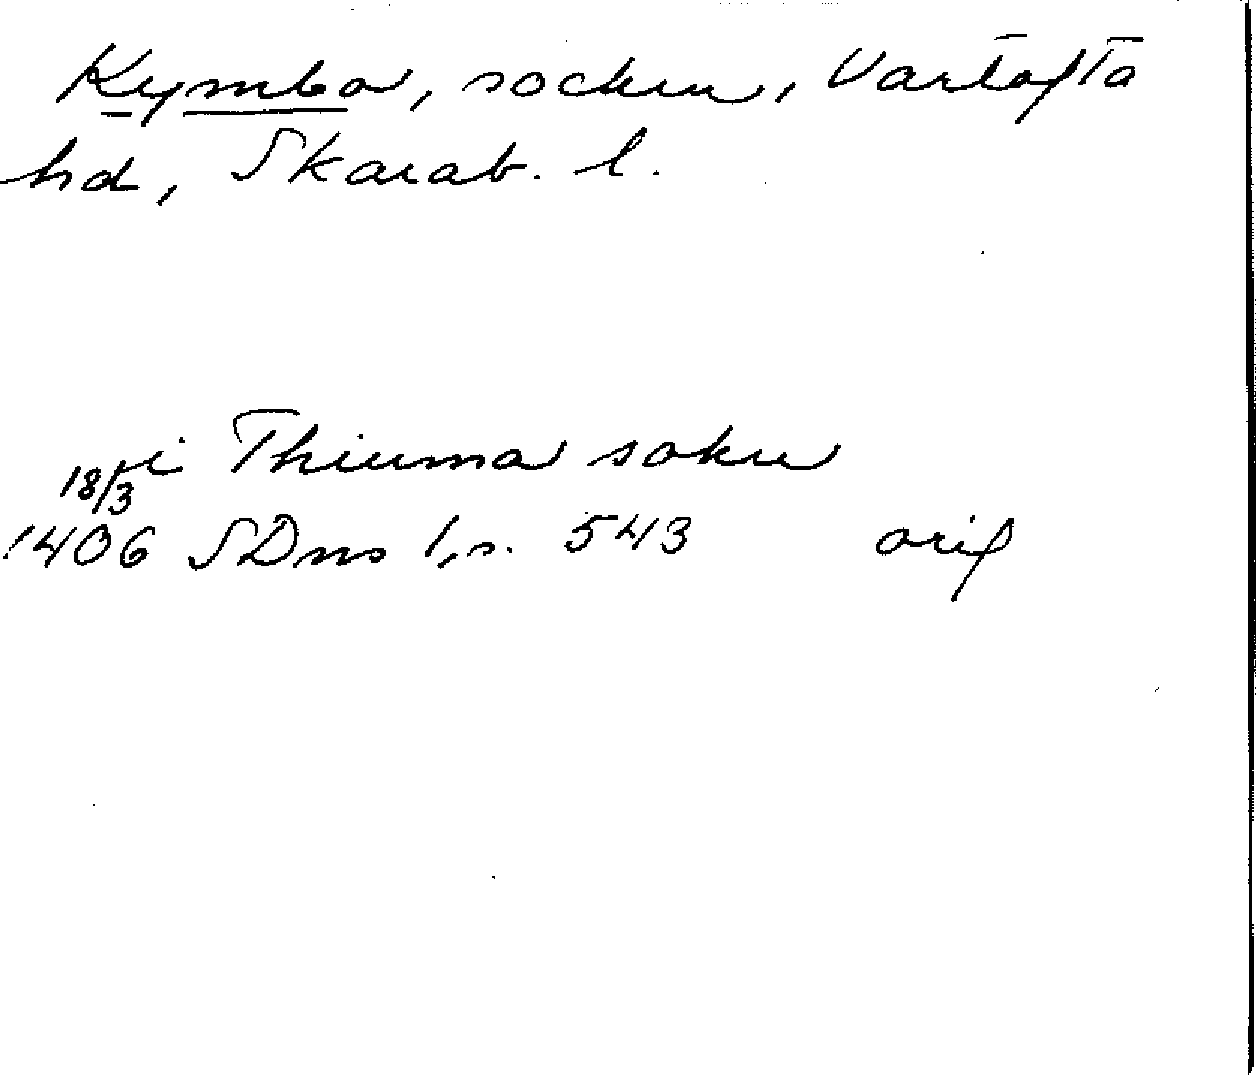 Kymbo, socken, Vartofta
hd, Skarab. l.
i Thiuma sokn
18/3
1406 SDns 1, s. 543 orig